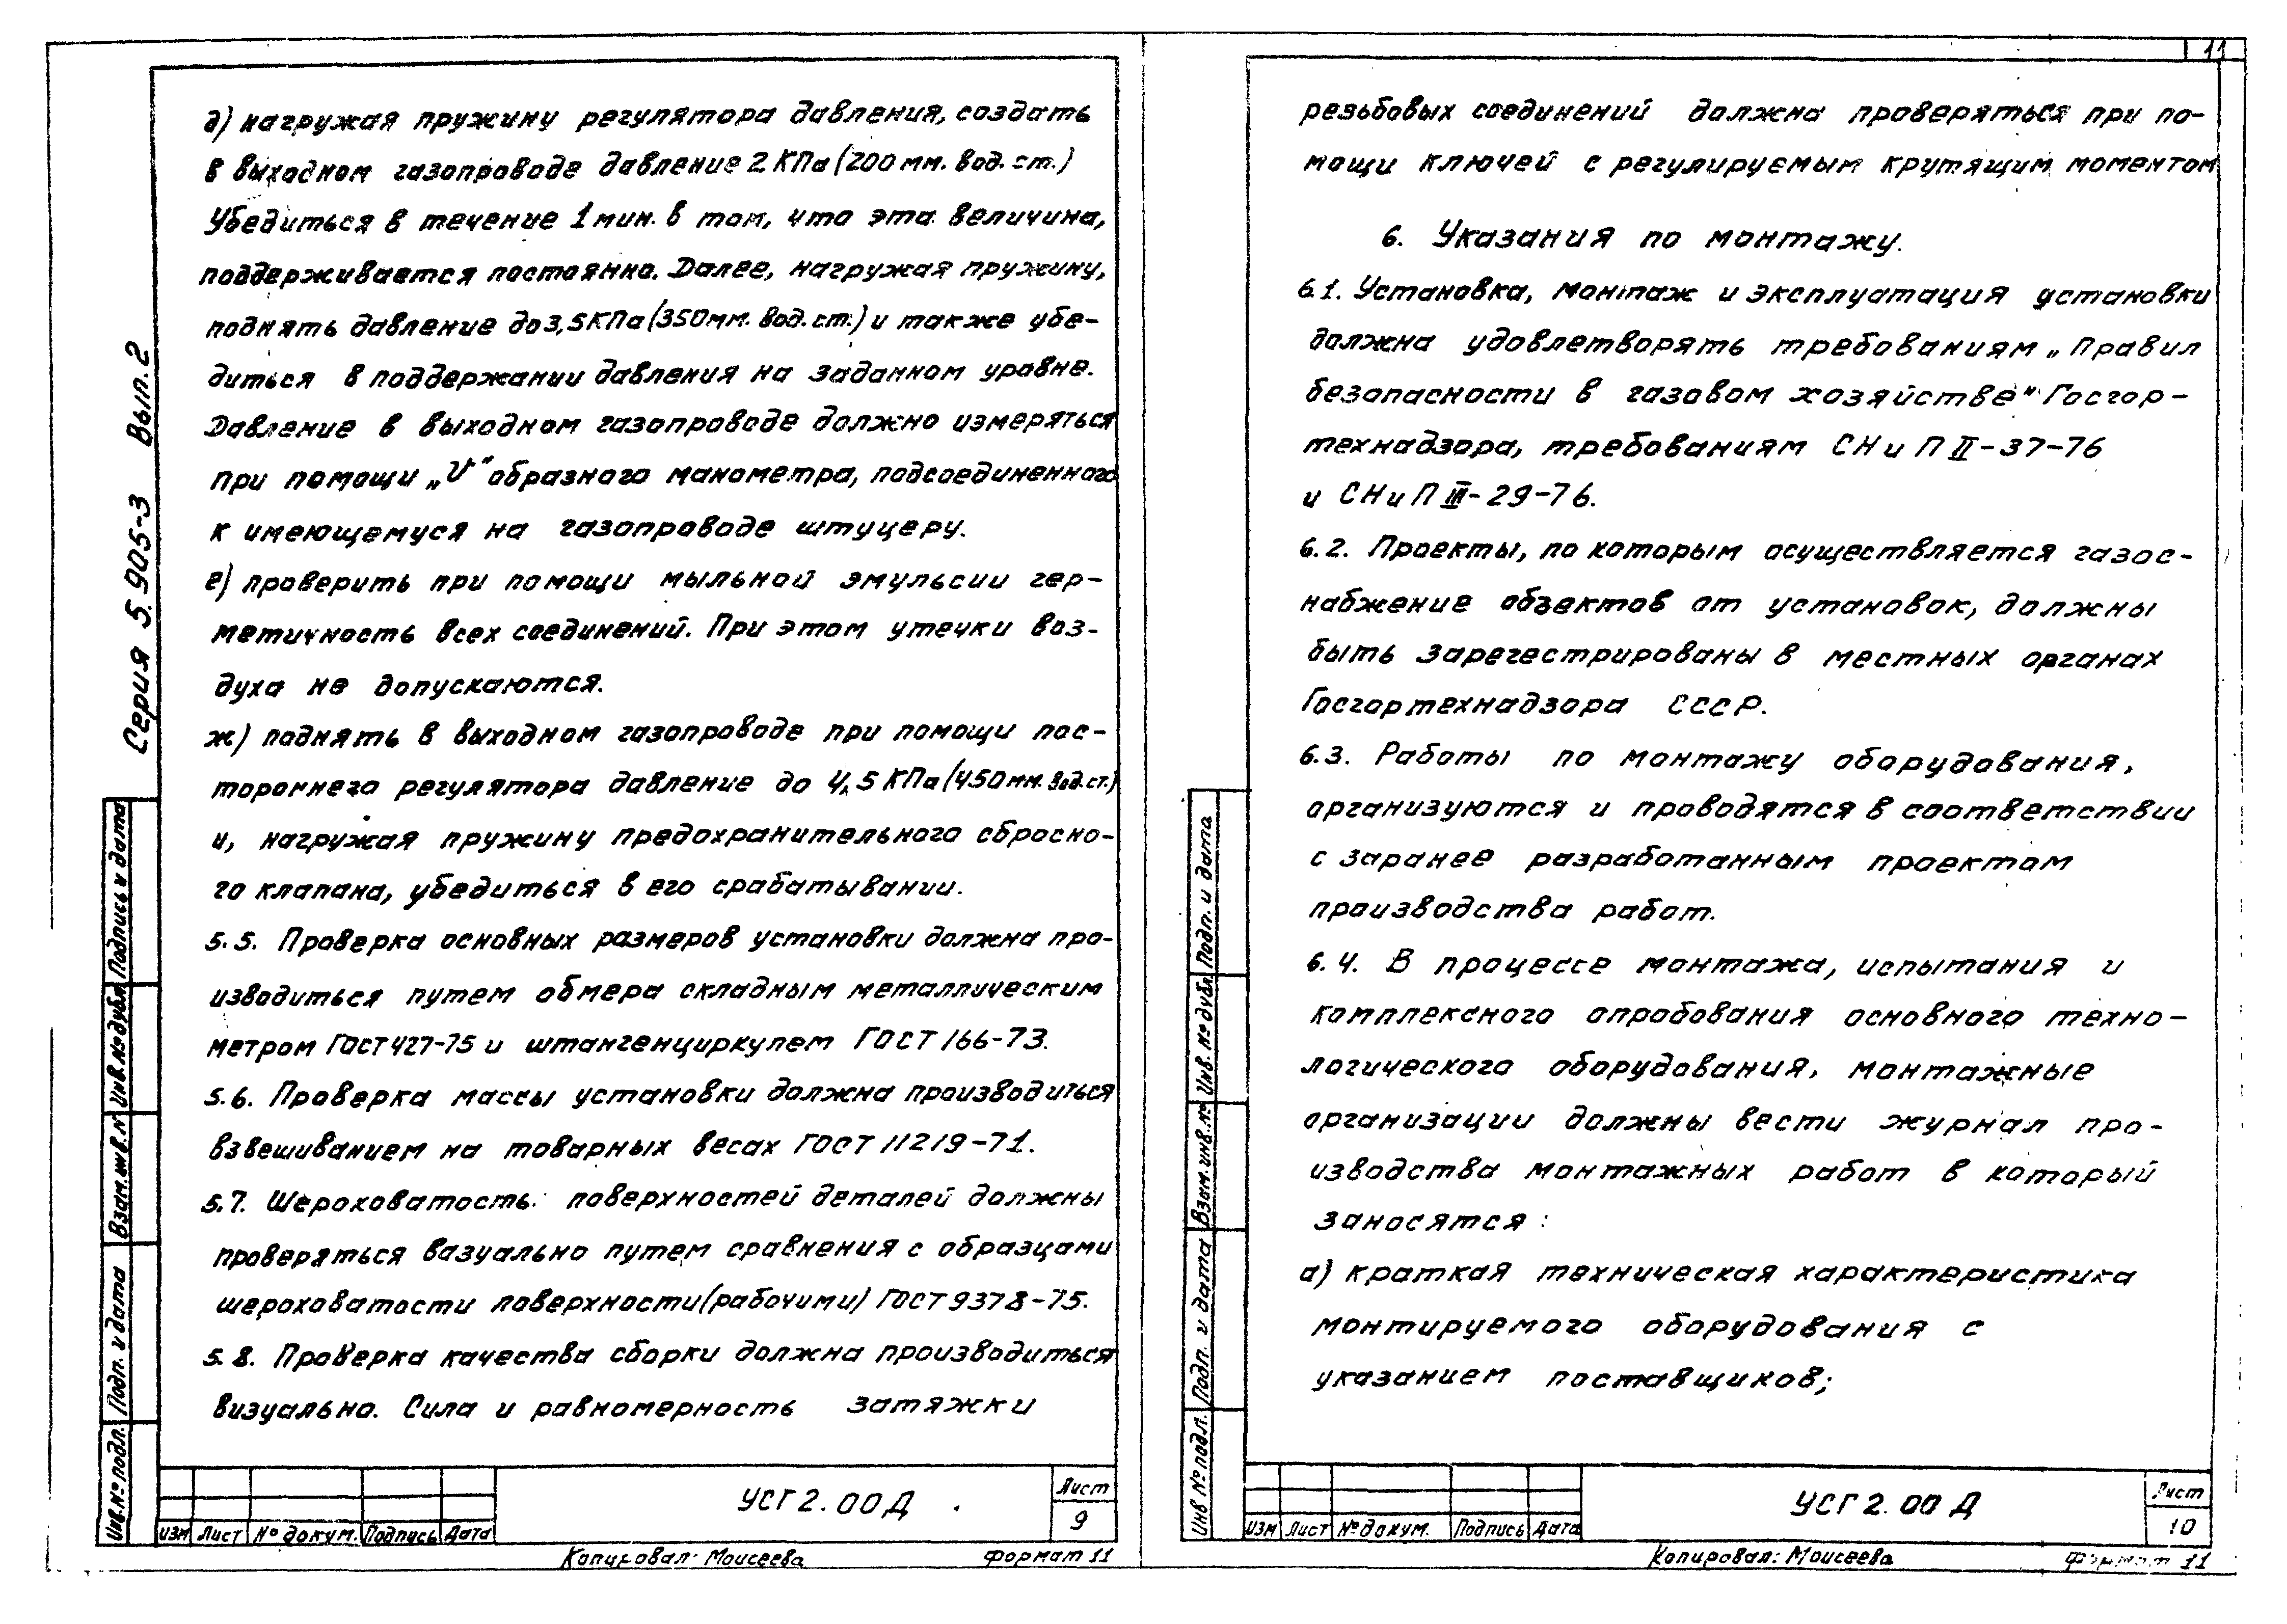 11
д) нагружая пружину регулятора давления, создать
в выходном газопроводе давление 2 КПа (200 мм. вод. ст.)
Убедиться в течение 1 мин. в том, что эта величина,
поддерживается постоянно. Далее, нагружая пружину,
поднять давление до 3,5 КПа (350 мм. вод. ст.) и также убе-
диться в поддержании давления на заданном уровне.
Давление в выходном газопроводе должно измеряться
при помощи „U" образного манометра, подсоединенного
к имеющемуся на газопроводе штуцеру.
е) проверить при помощи мыльной эмульсии гер-
метичность всех соединений. При этом утечки воз-
духа не допускаются.
ж) поднять в выходном газопроводе при помощи пос-
тороннего регулятора давление до 4,5 КПа (450 мм. вод. ст.)
и, нагружая пружину предохранительного сбросно-
го клапана, убедиться в его срабатывании.
5.5. Проверка основных размеров установки должна про-
изводиться путем обмера складным металлическим
метром ГОСТ 427-75 и штангенциркулем ГОСТ 166-73.
5.6. Проверка массы установки должна производиться
взвешиванием на товарных весах ГОСТ 11219-71.
5.7. Шероховатость поверхностей деталей должны
проверяться вазуально путем сравнения с образцами
шероховатости поверхности (рабочими) ГОСТ 9378-75.
5.8. Проверка качества сборки должна производиться
визуально. Сила и равномерность затяжки
Серия 5.905-3 Вып. 2
Подпись и дата
Инв. № дубл.
Взам. инв. №
Подп. и дата
Инв. № подл.
УСГ 2.00 Д
Лист
9
Изм Лист № докум. Подпись Дата
Копировал: Моисеева Формат 11
резьбовых соединений должна проверяться при по-
мощи ключей с регулируемым крутящим моментом
6. Указания по монтажу.
6.1. Установка, монтаж и эксплуатация установки
должна удовлетворять требованиям „Правил
безопасности в газовом хозяйстве" Госгор-
технадзора, требованиям СНиП II-37-76
и СНиП III-29-76.
6.2. Проекты, по которым осуществляется газос-
набжение объектов от установок, должны
быть зарегестрированы в местных органах
Госгортехнадзора СССР.
6.3. Работы по монтажу оборудования,
организуются и проводятся в соответствии
с заранее разработанным проектом
производства работ.
6.4. В процессе монтажа, испытания и
комплексного опробования основного техно-
логического оборудования, монтажные
организации должны вести журнал про-
изводства монтажных работ в который
заносятся:
а) краткая техническая характеристика
монтируемого оборудования с
указанием поставщиков;
Подп. и дата
Инв. № дубл.
Взам. инв. №
Подп. и дата
Инв № подл.
УСГ 2.00 Д
Лист
10
Изм Лист № докум. Подпись Дата
Копировал: Моисеева Формат 11